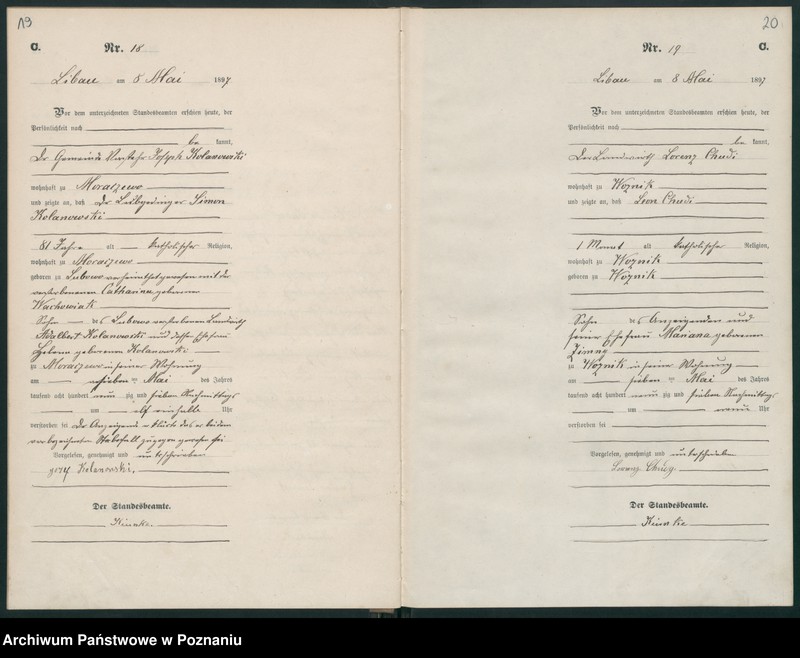 19
C. Nr. 18
Libau am 8 Mai 1897
Vor dem unterzeichneten Standesbeamten erschien heute, der
Persönlichkeit nach
be kannt,
Der Gemeinde Joseph Kolanowski
wohnhaft zu Moraczewo
und zeigte an, daß der Leibgedinger Simon
Kolanowski
81 Jahre alt katholischer Religion,
wohnhaft zu Moraczewo
geboren zu Lubowo verheirathet gewesen mit der
verstorbenen Catharina geborenen
Wachowiak
Sohn des Lubowo verstorbenen Landwirth
Adalbert Kolanowski und dessen Ehefrau
geborenen Kolanowski
zu Moraczewo in seiner Wohnung
am sieben ten Mai des Jahres
tausend acht hundert neun zig und sieben Nachmittags
um elf einhalb Uhr
verstorben sei Der Anzeigende erklärte das er bei dem
vorbezeichneten Sterbefall zugegen gewesen sei
Vorgelesen, genehmigt und unterschrieben
Józef Kolanowski.
Der Standesbeamte.
20
Nr. 19 C.
Libau am 8 Mai 1897
Vor dem unterzeichneten Standesbeamten erschien heute, der
Persönlichkeit nach
be kannt,
Der Landwirth Lorenz Chudi
wohnhaft zu Woznik
und zeigte an, daß Leon Chudi
1 Monat alt katholische Religion,
wohnhaft zu Woznik
geboren zu Woznik
Sohn des Anzeigenden und
seiner Ehefrau Mariana geborenen
Zimny
zu Woznik in seiner Wohnung
am sieben ten Mai des Jahres
tausend acht hundert neun zig und sieben Nachmittags
um neun Uhr
verstorben sei
Vorgelesen, genehmigt und unterschrieben
Lorenz
Der Standesbeamte.
Archiwum Państwowe w Poznaniu